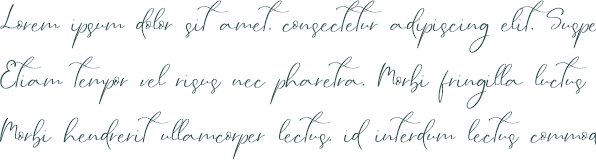 Lorem ipsum dolor sit amet, consectetur adipiscing elit. Suspe
Etiam tempor vel risus nec pharetra. Morbi fringilla luctus
Morbi hendrerit ullamcorper lectus, id interdum lectus commod